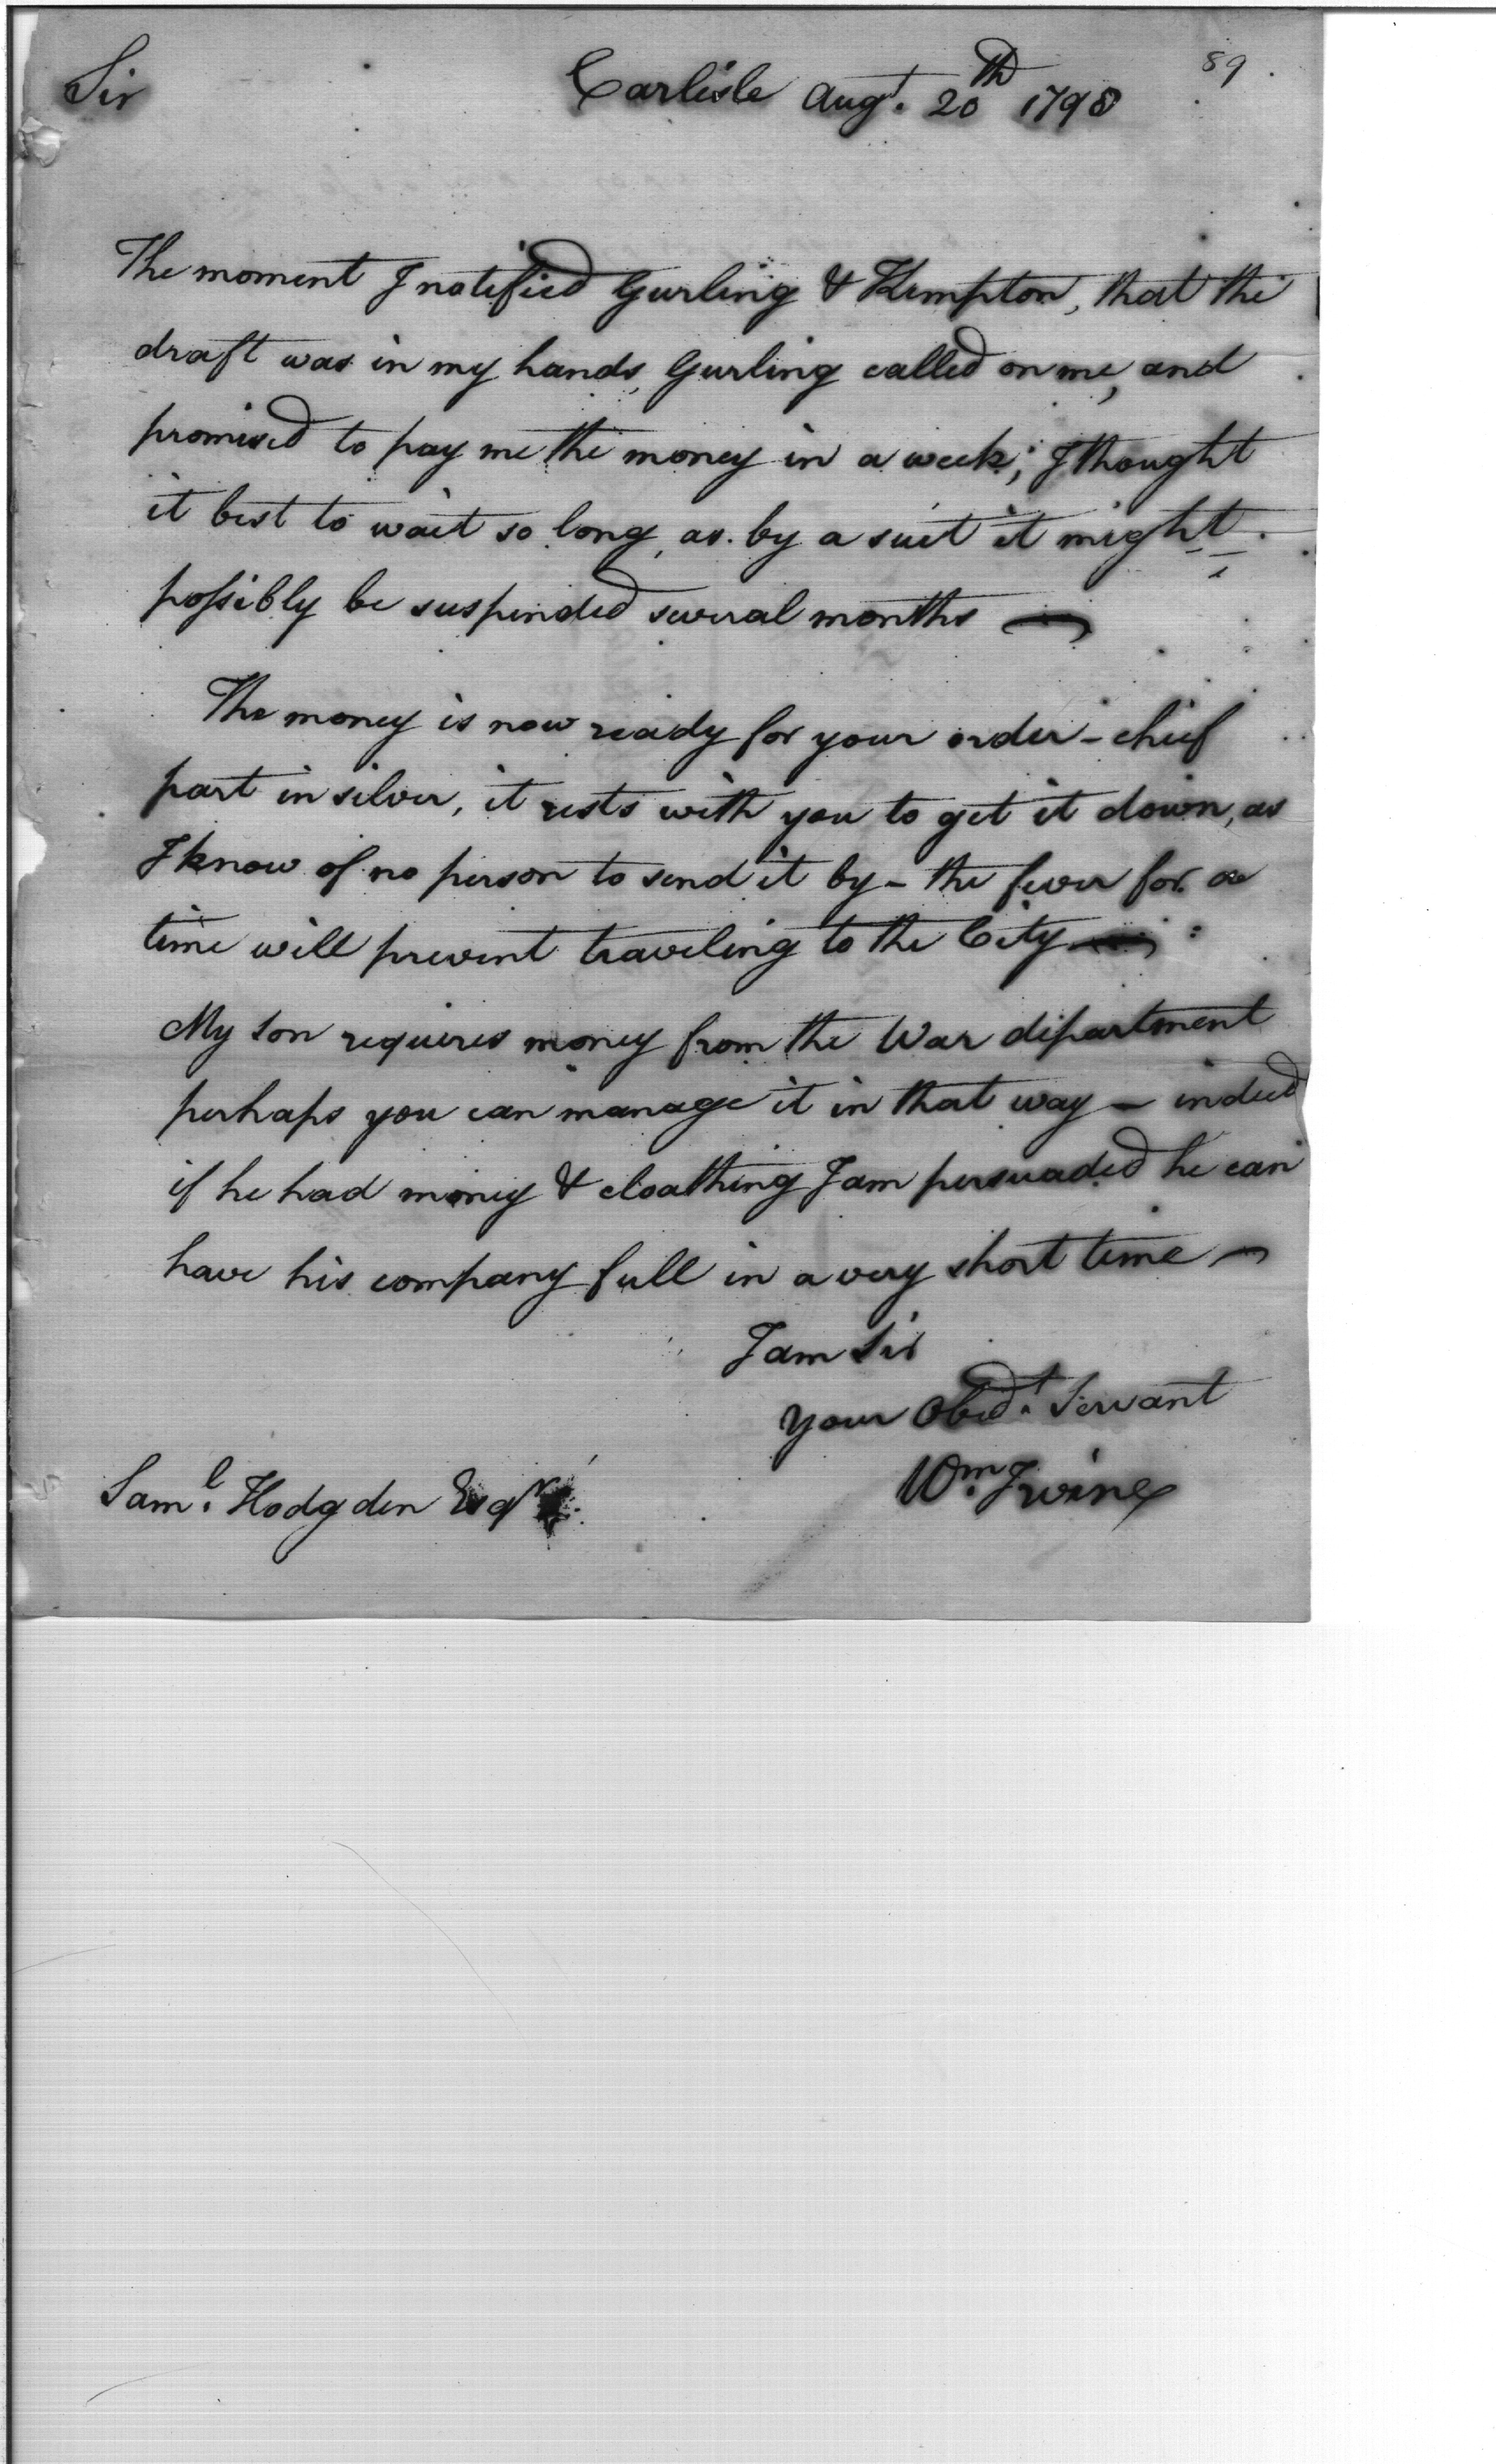 89
Sir Carlisle Augt. 20th 1798
The moment I notified Gurling & Kempton, that the
draft was in my hands, Gurling called on me, and
promised to pay me the money in a week; I thought
it best to wait so long, as by a suit it might
possibly be suspended several months —
The money is now ready for your order - chief
part in silver, it rests with you to get it down, as
I know of no person to send it by - the fever for a
time will prevent traveling to the City —
My son requires money from the War department
perhaps you can manage it in that way — indeed
if he had money & cloathing I am persuaded he can
have his company full in a very short time —
I am Sir
your Obedt. Servant
Wm. Irvine
Saml. Hodgden Esqr.